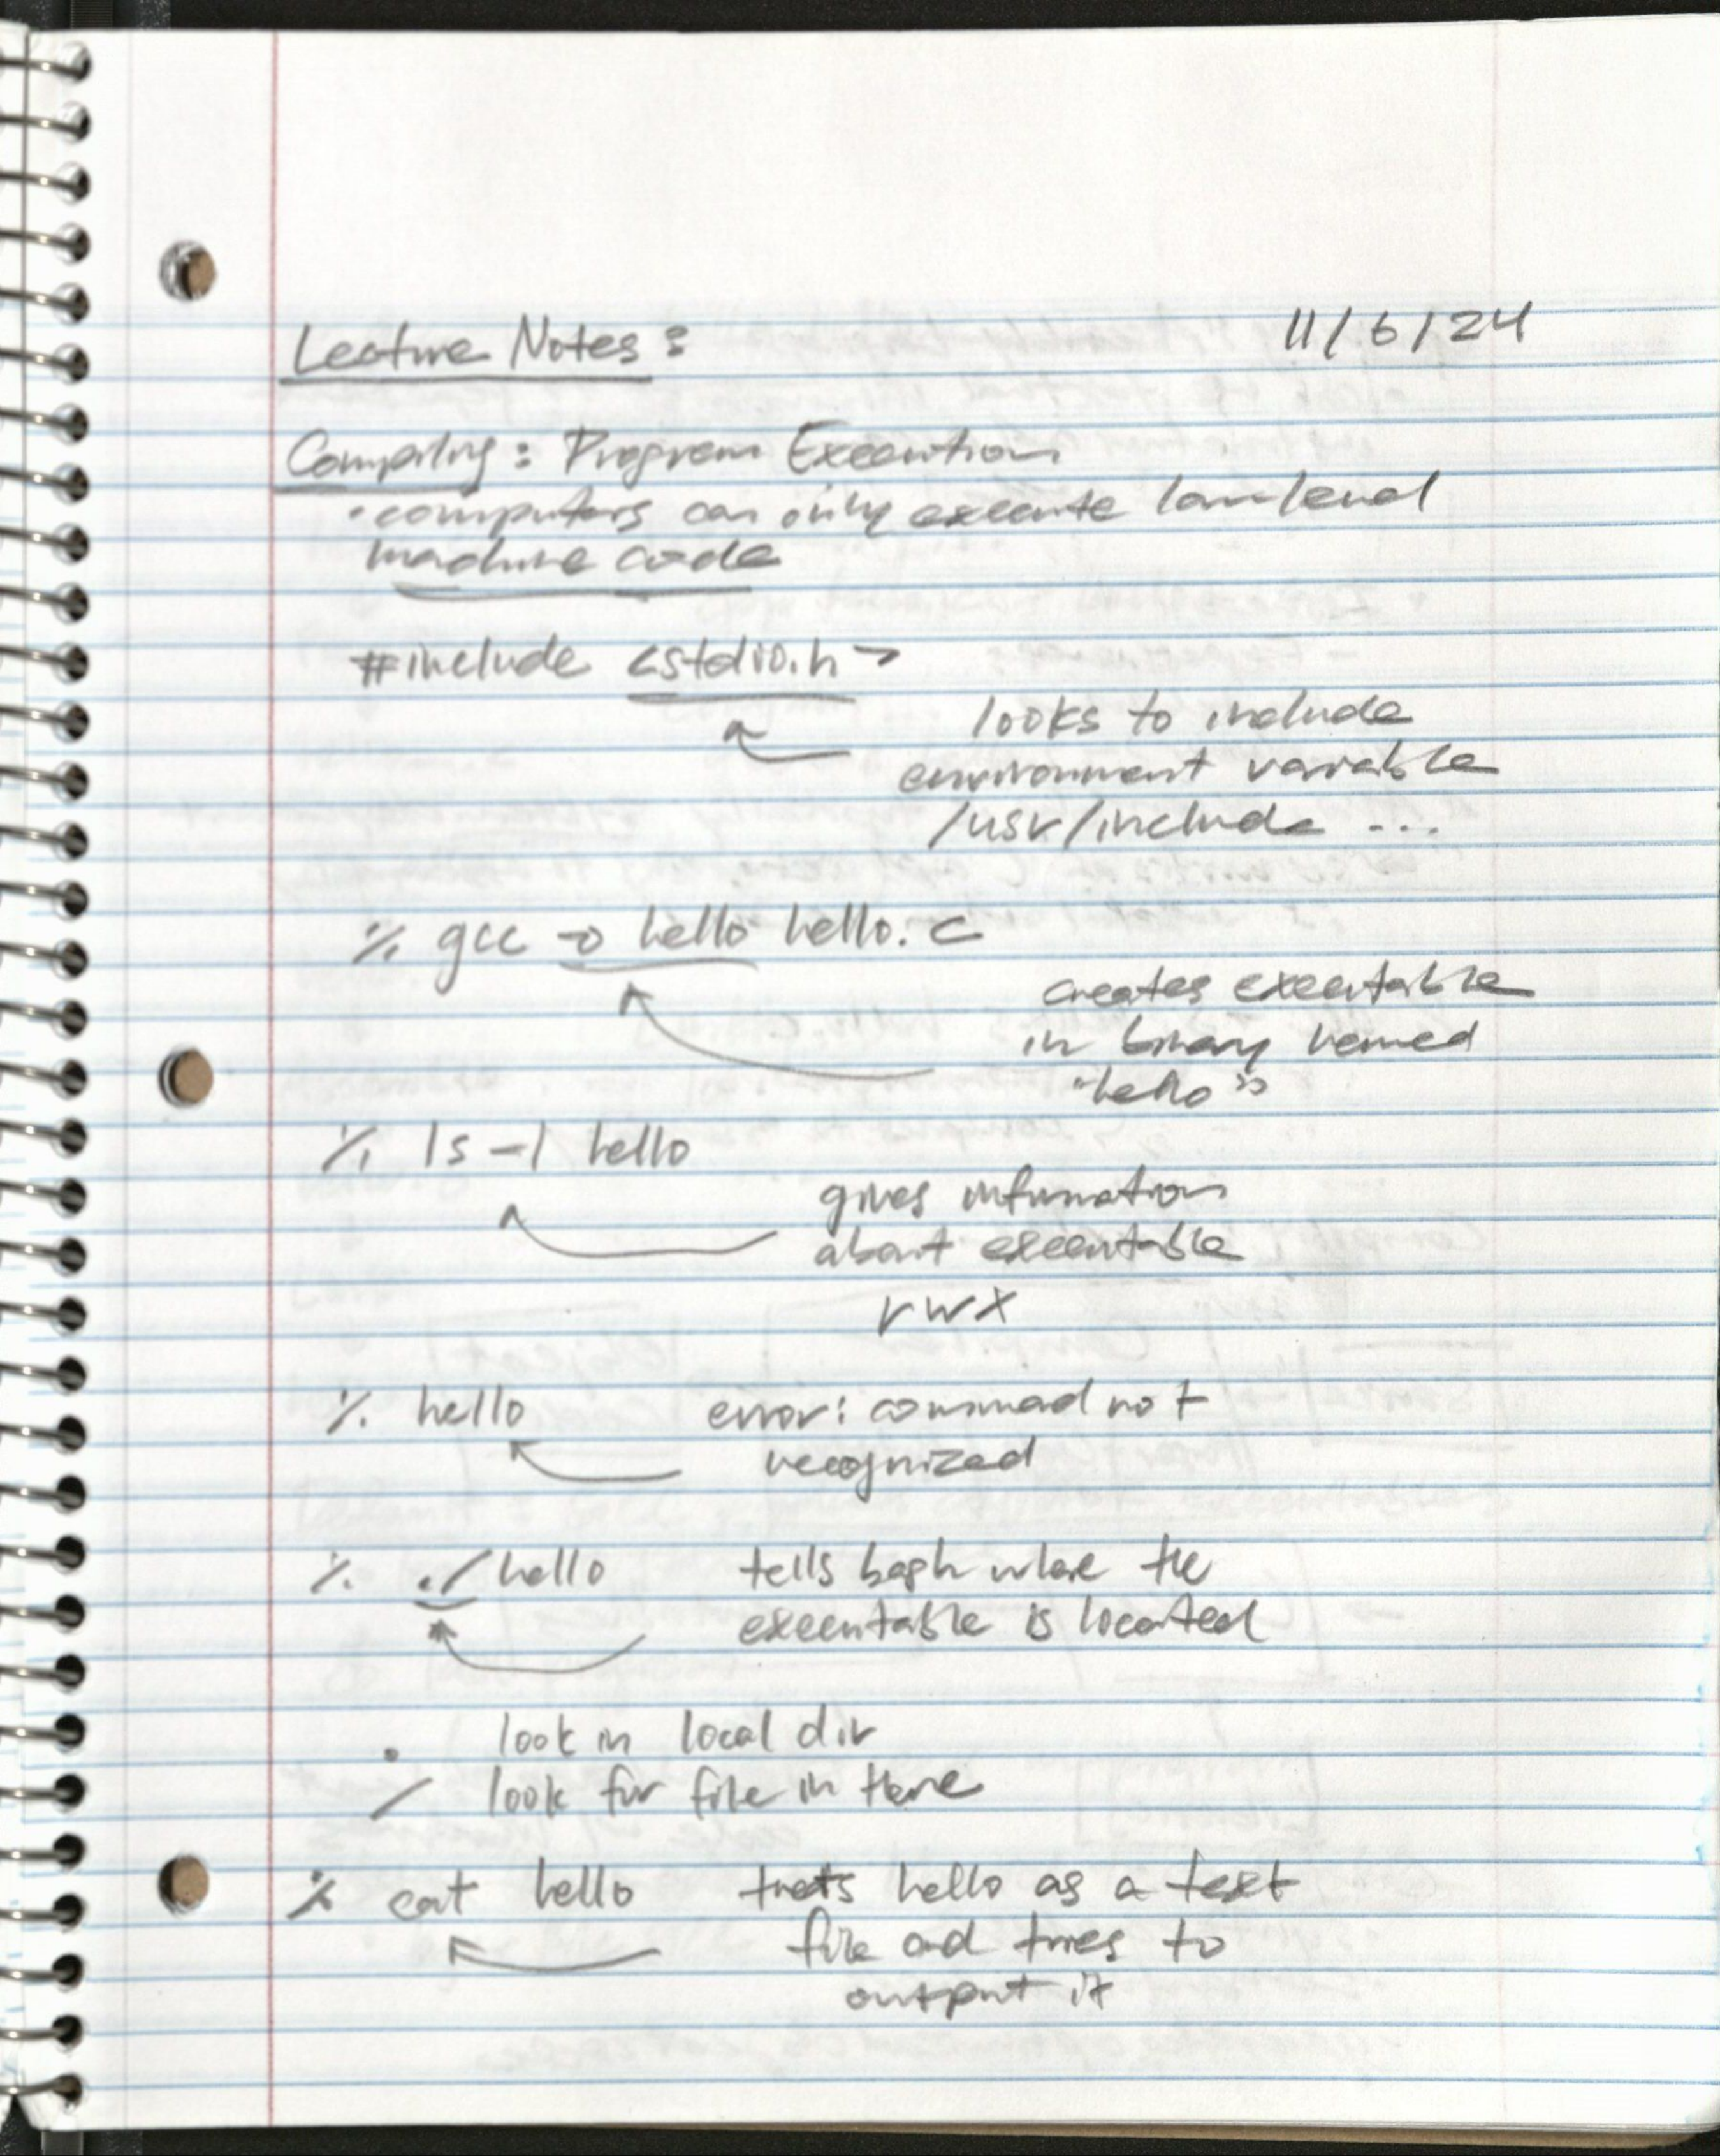 Lecture Notes: 11/6/24
Compiling: Program Execution
• computers can only execute low-level
machine code
#include <stdio.h>
looks to include
environment variable
/usr/include ...
% gcc -o hello hello.c
creates executable
in binary named
"hello"
% ls -l hello
gives information
about executable
rwx
% hello error: commad not
recognized
% ./hello tells bash where the
executable is located
. look in local dir
/ look for file in there
% cat hello treats hello as a text
file and tries to
output it